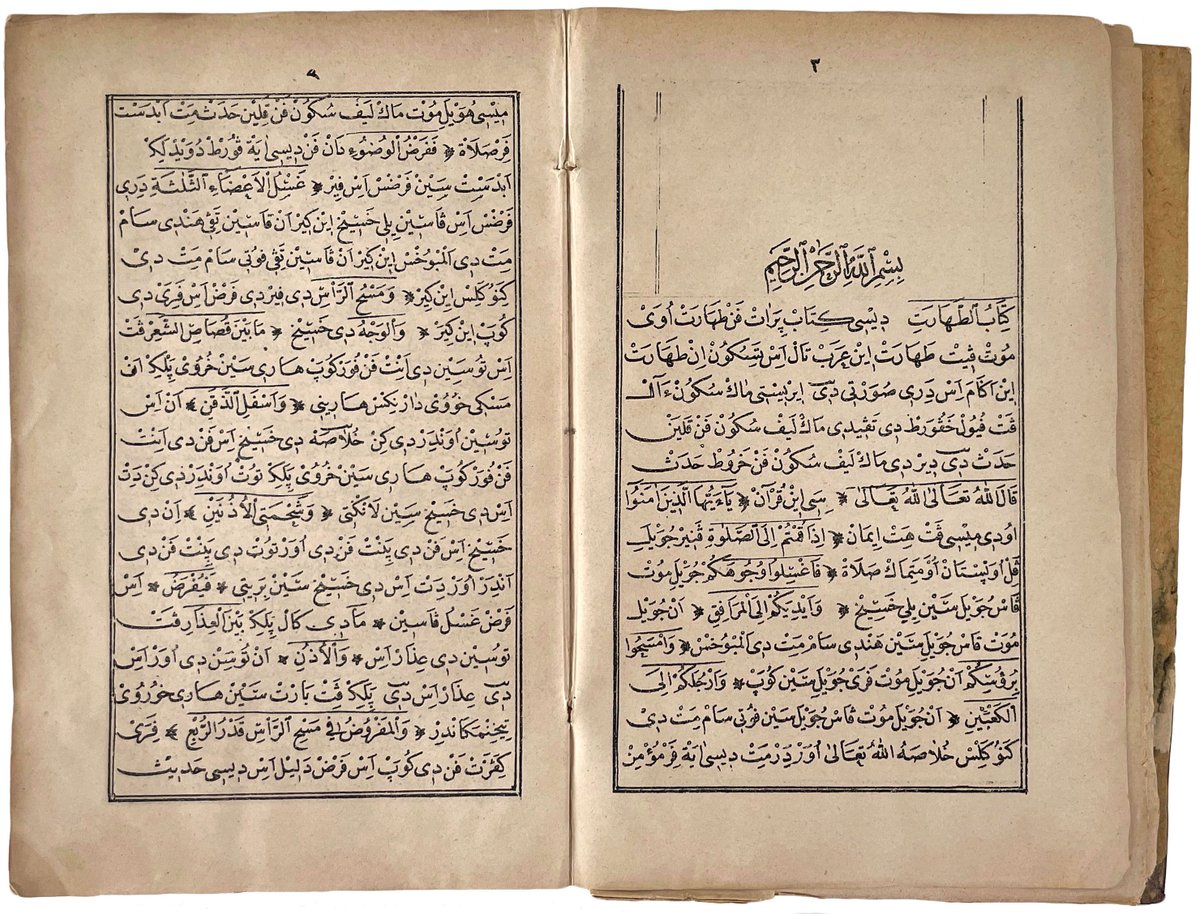 ٣
بِسْمِ ٱللّٰهِ ٱلرَّحْمٰنِ ٱلرَّحِيمِ
كِتَابُ ٱلطَّهَارَتِ دِيسِى كِتَابْ پِرَاتْ فَنْ طَهَارَتْ اُوَىْ
مُوتْ ڤِيتْ طَهَارَتْ اِينْ عَرَبْ تَالْ اَسْ تَسْكُونْ اِنْ طَهَارَتْ
اِينْ اَكَامْ اَسْ دِرِى صُورْتِى دِىْ اِيرِيسْتِى مَاكْ سْكُونْ ءَآلْ
ڤَتْ فْيُولْ خَفُورْطْ دِىْ تڤِيدِى مَاكْ لَيفْ سْكُونْ فَنْ قَلَينْ
حَدَثْ دِىْ دِيرْدِى مَاكْ لَيفْ سْكُونْ فَنْ خْرُوطْ حَدَثْ
قَالَ اللّٰهُ تَعَالىٰ اللّٰهُ تَعَالىٰ سِى اِينْ قُرْآنْ يَآءَيُّهَا ٱلَّذِينَ اٰمَنُوا
اُودِى مِيسِى ڤَتْ هَتْ اِيمَانْ اِذَا قُمْتُمْ اِلَى ٱلصَّلٰوةِ ڤَنِيرْ جُويْلِ
ڤِلْ اُوپِسْتَانْ اُومْتِمَاكْ صَلَاةْ فَاغْسِلُوا وُجُوهَكُمْ جُويْلِ مُوتْ
ڤَاسْ جُويْلِ سَيْنِ يِلِى خَسِيخْ وَاَيْدِيَكُمْ اِلَى ٱلْمَرَافِقِ اَنْ جُويْلِ
مُوتْ ڤَاسْ جُويْلِ سَيْنِ هَنْدِى سَامْ مِتْ دِى اَلْمَبُوخْسْ وَامْسَحُوا
بِرُؤُسِكُمْ اَنْ جُويْلِ مُوتْ فْرَىْ جُويْلِ سَيْنِ كُوپْ وَاَرْجُلَكُمْ اِلَى
ٱلْكَعْبَيْنِ اَنْ جُويْلِ مُوتْ ڤَاسْ جُويْلِ سَيْنِ فُوتِى سَامْ مِتْ دِىْ
كْنُوكِلْسْ خُلَاصَهْ اللّٰهُ تَعَالىٰ اُورْدِرْ مِتْ دِيسِى اٰيَةْ فِرْ مُؤْمِنْ
٤
مِيسِى هُويْلِ مُوتْ مَاكْ لَيفْ سْكُونْ فَنْ قَلَينْ حَدَثْ مِتْ اٰبْدَسْتْ
فِرْ صَلَاةْ فَفَرْضُ ٱلْوُضُوءِ دَانْ فَنْ دِيسِى اٰيَةْ ڤُورْطْ دُويْدَلِكْ
اٰبْدَسْتْ سَيْنِ فَرْضْسْ اِسْ فِيرْ غَسْلُ ٱلْاَعْضَاءِ ٱلثَّلٰثَةِ دِرِى
فَرْضْسْ اِسْ ڤَاسِينْ يِلِى خَسِيخْ اِينْ كِيرْ اَنْ ڤَاسِينْ تڤِى هَنْدِى سَامْ
مِتْ دِى اَلْمَبُوخْسْ اِينْ كِيرْ اَنْ ڤَاسِينْ تڤِى فُوتِى سَامْ مِتْ دِىْ
كْنُوكِلْسْ اِينْ كِيرْ وَمَسْحُ ٱلرَّأْسِ دِى فِيرْدِى فَرْضْ اِسْ فْرَىْ دِى
كُوپْ اِينْ كِيرْ وَٱلْوَجْهُ دِى خَسِيخْ مَا بَيْنَ قُصَاصِ ٱلشَّعْرِ ڤَتْ
اِسْ تُوسِينْ دِى اَنْتْ فَنْ فُورْكُوپْ هَارِى سَيْنْ خْرُوىْ پْلِكْ اَفْ
مَسْكِى خْرُوىْ دَارْ نِكْسْ هَارِينِى وَاَسْفَلِ ٱلذَّقَنِ اَنْ اِسْ
تُوسِينْ اُونْدِرْ دِى كِنْ خُلَاصَهْ دِى خَسِيخْ اِسْ فَنْ دِى اَنْتْ
فَنْ فُورْكُوپْ هَارِى سَيْنْ خْرُوىْ پْلِكْ تُوتْ اُونْدِرْ دِى كِنْ دِتْ
اِسْ دِى خَسِيخْ سَيْنْ لَانْكْتِى وَشَحْمَتَىِ ٱلْاُذُنَيْنِ اَنْ دِى
خَسِيخْ اِسْ فَنْ دِى پَينْتْ فَنْ دِى اُورْ تُوتْ دِى پَينْتْ فَنْ دِى
اَنْدِرْ اُورْ دِتْ اِسْ دِى خَسِيخْ سَيْنْ بْرِيتِى فَيُفْرَضُ اِسْ
فَرْضْ غَسْلُ ڤَاسِينْ مَا دِى كَالْ پْلِكْ بَيْنَ ٱلْعِذَارِ ڤَتْ
تُوسِينْ دِى عِذَارْ اِسْ وَٱلْاُذُنِ اَنْ تُوسِنْ دِى اُورْ اِسْ
دِىْ عِذَارْ اِسْ دِىْ پْلِكْ ڤَتْ بَارْتْ سَيْنْ هَارِى خْرُوىْ
وَٱلْمَفْرُوضُ فِى مَسْحِ ٱلرَّأْسِ قَدْرُ ٱلرُّبُعِ فْرَىْ
كْڤَرْتْ فَنْ دِى كُوپْ اِسْ فَرْضْ دَلِيلْ اِسْ دِيسِى حَدِيثْ